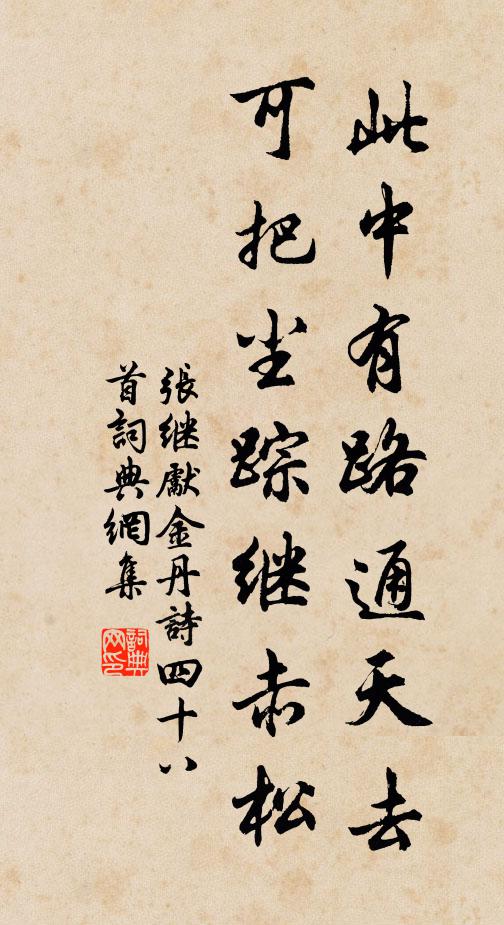 此中有路通天去
可把尘踪继赤松
張继獻金丹詩四十八
首詞典網集
詞典网印